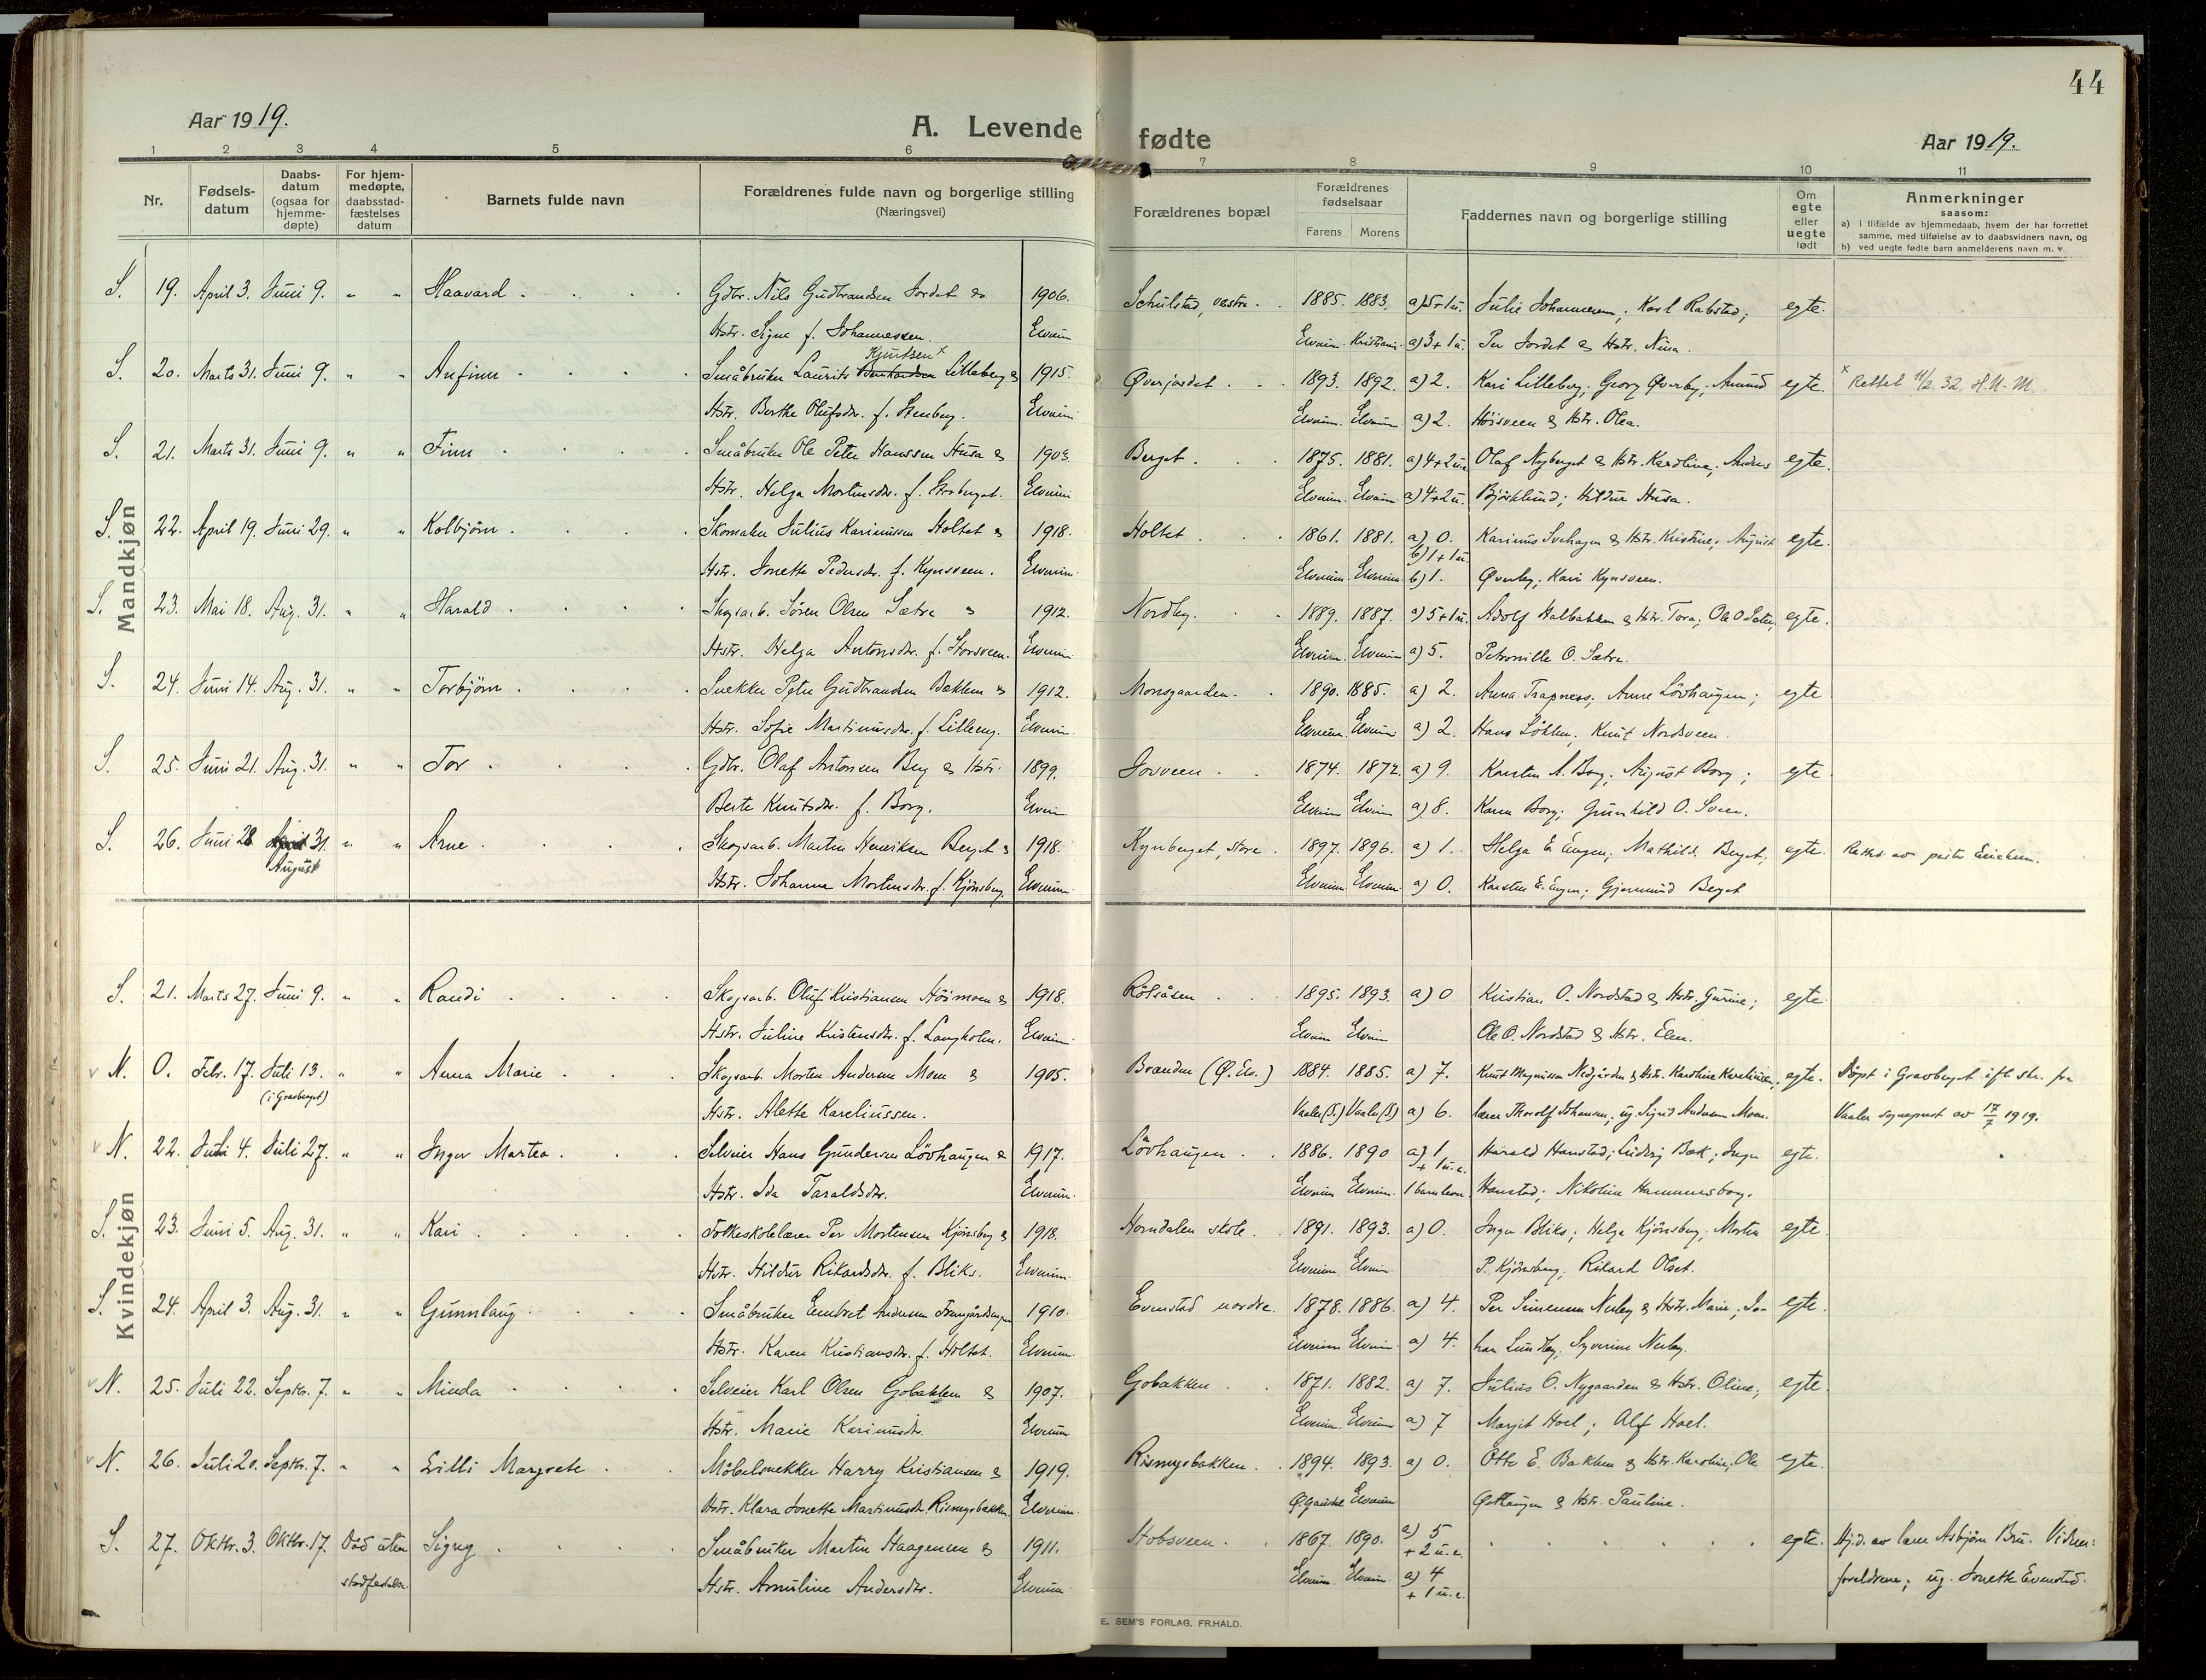 44
Aar 1919.
A. Levende fødte
Aar 1919.
1 2 3 4 5 6 7 8 9 10 11
Nr.
Fødsels-
datum
Daabs-
datum
(ogsaa for
hjemme-
døpte)
For hjem-
medøpte,
daabsstad-
fæstelses
datum
Barnets fulde navn
Forældrenes fulde navn og borgerlige stilling
(Næringsvei)
Forældrenes bopæl
Forældrenes
fødselsaar
Farens Morens
Faddernes navn og borgerlige stilling
Om
egte
eller
uegte
født
Anmerkninger
saasom:
a) i tilfælde av hjemmedaab, hvem der har forrettet
samme, med tilføielse av to daabsvidners navn, og
b) ved uegte fødte barn anmelderens navn m. v.
Mandkjøn
S. 19. April 3. Juni 9. " " Haavard Gdbr. Nils Gudbrandsen Jordet & 1906. Schulstad, vestre 1885. 1883. a) 5+1u. Julie Johannesen; Karl Rabstad; egte.
Hstr. Signe f. Johannessen. Elverum Elverum. Kristiania a) 3+1u. Per Jordet & Hstr. Nina.
Kjuutsen x
S. 20. Marts 31. Juni 9. " " Anfinn Småbruker Laurits Lilleberg & 1915. Øverjordet 1893. 1892. a) 2. Kari Lilleberg; Georg Øverby; Amund egte. x Rettet 11/2. 32. H.N.M.
Hstr. Berthe Olufsdtr. f. Stenberg. Elverum Elverum. Elverum a) 2. Høisveen & Hstr. Olea.
S. 21. Marts 31. Juni 9. " " Finn Småbruker Ole Peter Hanssen Husa & 1903. Berget 1875. 1881. a) 4+2u. Olaf Nyberget & Hstr. Karoline; Anders egte.
Hstr. Helga Mortensdtr. f. Storberget. Elverum Elverum. Elverum a) 4+2u. Bjørklund; Hildur Husa.
S. 22. April 19. Juni 29. " " Kolbjørn Skomaker Julius Karinussen Holtet & 1918. Holtet 1861. 1881. a) 0. b) 1+1u. Karinus Svehagen & Hstr. Kristine; August egte.
Hstr. Jonette Pedersdtr. f. Kynsveen. Elverum. Elverum Elverum b) 1. Øverby; Kari Kynsveen.
S. 23. Mai 18. Aug. 31. " " Harald Skogsarb. Søren Olsen Sætre & 1912. Nordby. 1889. 1887. a) 5+1u. Adolf Halbakken & Hstr. Tora; Ole O. Seter; egte.
Hstr. Helga Antonsdtr. f. Storsveen. Elverum Elverum. Elverum a) 5. Petronille O. Sætre.
S. 24. Juni 14. Aug. 31. " " Torbjørn Snekker Peter Gudbrandsen Bakken & 1912. Monsgaarden. 1890. 1885. a) 2. Anna Trapness; Anne Løvhaugen; egte
Hstr. Sofie Martinusdtr. f. Lilleeng. Elverum. Elverum. Elverum a) 2. Hans Løkken; Knut Nordsveen.
S. 25. Juni 21. Aug. 31. " " Tor Gdbr. Olaf Antonsen Berg & Hstr. 1899. Sorveen 1874. 1872. a) 9. Karsten A. Borg; August Borg; egte
Berte Knutsdtr. f. Borg. Elverum Elverum Elverum a) 8. Karen Borg; Gunhild O. Sveen.
S. 26. Juni 28 April 31. " " Arne Skogsarb. Martin Henriksen Berget & 1918. Kynberget, store. 1897. 1896. a) 1. Helga E. Engen; Mathilde Berget; egte. Rettet av pastor Erichsen.
August Hstr. Johanna Mortensdtr. f. Kjønsberg. Elverum. Elverum Elverum a) 0. Karsten E. Engen; Gjermund Berget
Kvindekjøn
S. 21. Marts 27. Juni 9. " " Randi Skogsarb. Oluf Kristiansen Høimoen & 1918. Rølsåsen 1895. 1893. a) 0 Kristian O. Nordstad & Hstr. Gurine; egte.
Hstr. Juline Kristensdtr. f. Langholm. Elverum Elverum Elverum Ole O. Nordstad & Hstr. Elen.
N. 0. Febr. 17. Juli 13. " " Anna Marie Skogsarb. Morten Andersen Moen & 1905. Branden (Ø. Elv.) 1884. 1885. a) 7. Knut Magnussen Nedgården & Hstr. Karoline Kareliussen, egte. Døpt i Gravberget ifl. skr. fra
(i Gravberget) Hstr. Alette Kareliussen. Vaaler(S.) Vaaler(S) a) 6. lærer Thorolf Johansen; ug. Sigrid Andersen Moen. Vaaler sogneprest av 17/7 1919.
N. 22. Juli 4. Juli 27. " " Inger Martea Selveier Hans Gundersen Løvhaugen & 1917. Løvhaugen 1886. 1890 a) 1 + 1u.e. Harald Hanstad; Ludvig Bak; Inga egte.
Hstr. Ida Taraldsdtr. Elverum. Elverum Elverum. Hanstad; Nikoline Hammersborg.
S. 23. Juni 5. Aug. 31. " " Kari Folkeskolelærer Per Mortensen Kjønsberg & 1918. Horndalen skole 1891. 1893. a) 0. Inga Bliks; Helga Kjønsberg; Morten egte.
Hstr. Hildur Rikardsdtr. f. Bliks. Elverum. Elverum. Elverum P. Kjønsberg; Rikard Olset.
S. 24. April 3. Aug. 31. " " Gunnlaug Småbruker Embret Andersen Framgårdsengen 1910. Evenstad nordre. 1878. 1886. a) 4. Per Simensen Nerby & Hstr. Marie; Jo- egte.
Hstr. Karen Kristiansdtr. f. Holtet. Elverum. Elverum Elverum a) 4. han Lundby; Syverine Nerby.
N. 25. Juli 22. Septbr. 7. " " Minda Selveier Karl Olsen Gobakken & 1907. Gobakken 1871. 1882. a) 7. Julius O. Nygaarden & Hstr. Oline; egte.
Hstr. Marie Karinusdtr. Elverum Elverum. Elverum a) 7 Margit Hoel; Alf Hoel.
N. 26. Juli 20. Septbr. 7. " " Lilli Margrete Møbelsnekker Harry Kristiansen & 1919. Rismyrbakken 1894. 1893. a) 0. Otto E. Bakken & Hstr. Karoline; Ole egte.
Hstr. Klara Jonette Martinusdtr. Rismyrbakken Elverum. Ø. Gausdal Elverum Østhaugen & Hstr. Pauline.
S. 27. Oktbr. 3. Oktbr. 17. Död uten Signy Småbruker Martin Haagensen & 1911. Stobsveen 1867. 1890. a) 5 + 2u.e. egte. Hj.d. av lærer Asbjørn Bru. Vidner:
stadfæstelse. Hstr. Arnuline Andersdtr. Elverum Elverum. Elverum a) 4 + 1u.e. foreldrene; ug. Jonette Evenstad.
E. SEM'S FORLAG, FR.HALD.